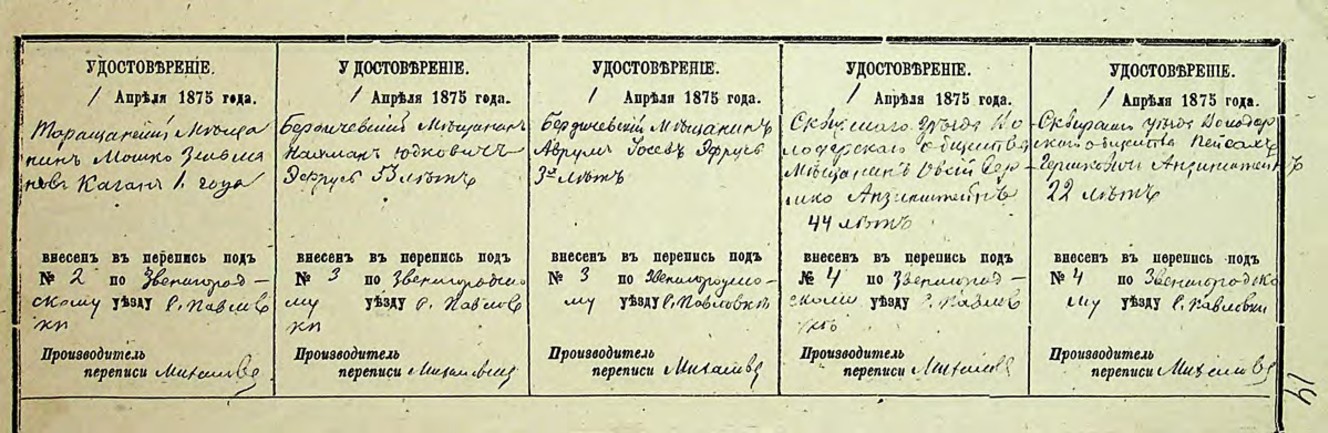 УДОСТОВѢРЕНІЕ.
1 Апрѣля 1875 года.
Таращанскій Мѣща
нинъ Мошко Зельма
новъ Каганъ 1. года
внесенъ въ перепись подъ
№ 2 по Звенигород-
скому уѣзду с. Павлов
ки
Производитель
переписи
УДОСТОВѢРЕНІЕ.
1 Апрѣля 1875 года.
Бердичевскій Мѣщанинъ
Нахманъ Юдковичъ
Эфрусъ 53 лѣтъ
внесенъ въ перепись подъ
№ 3 по Звенигородско
му уѣзду с. Павлов
ки
Производитель
переписи
УДОСТОВѢРЕНІЕ.
1 Апрѣля 1875 года.
Бердичевскій Мѣщанинъ
Аврумъ Іосевъ Эфрусъ
3х лѣтъ
внесенъ въ перепись подъ
№ 3 по Звенигородско-
му уѣзду с. Павловки
Производитель
переписи
УДОСТОВѢРЕНІЕ.
1 Апрѣля 1875 года.
Сквирскаго уѣзда Во
лодарскаго общества
Мѣщанинъ Овсій Гер-
шко
44 лѣтъ
внесенъ въ перепись подъ
№ 4 по Звенигород-
скому уѣзду с. Павлов
Производитель
переписи
УДОСТОВѢРЕНІЕ.
1 Апрѣля 1875 года.
Сквирскаго уѣзда Володар
скаго общества Пейсахъ
Гершковичъ
22 лѣтъ
внесенъ въ перепись подъ
№ 4 по Звенигородско
му уѣзду с. Павловки
Производитель
переписи
14